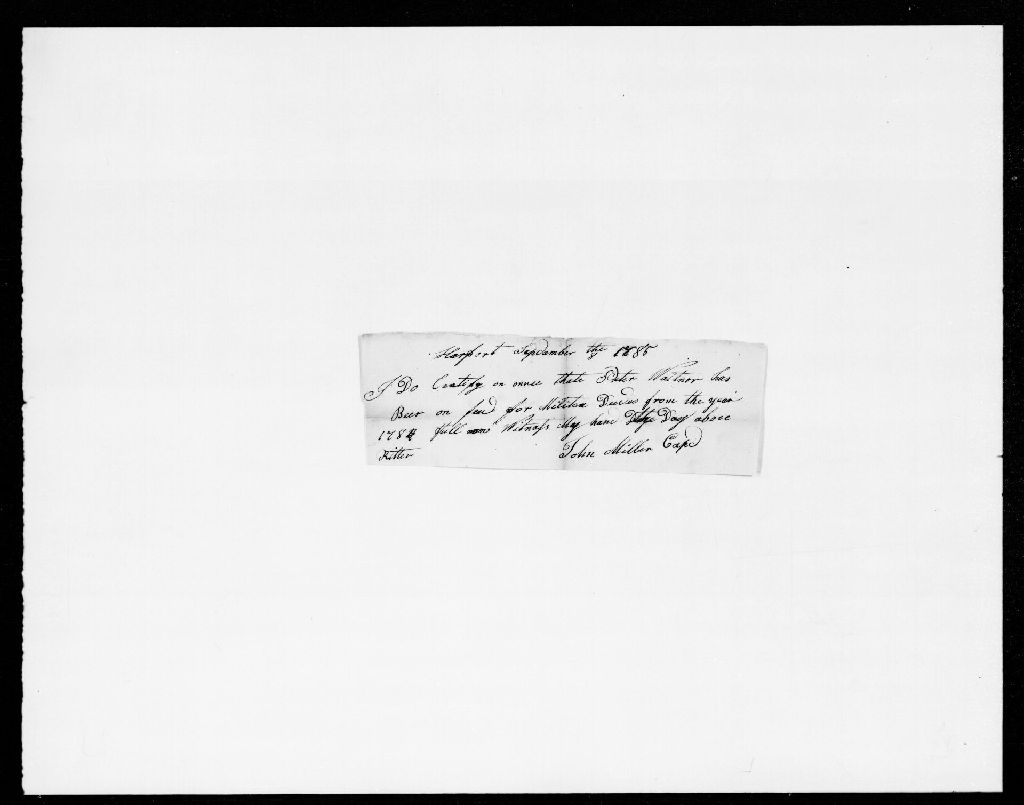 September th 1785
I Do Certify on onnce thate Peter Waltner has
Beer on for Militea from the year
1784 full Witness My hane Day above
Ritter John Miller Capd